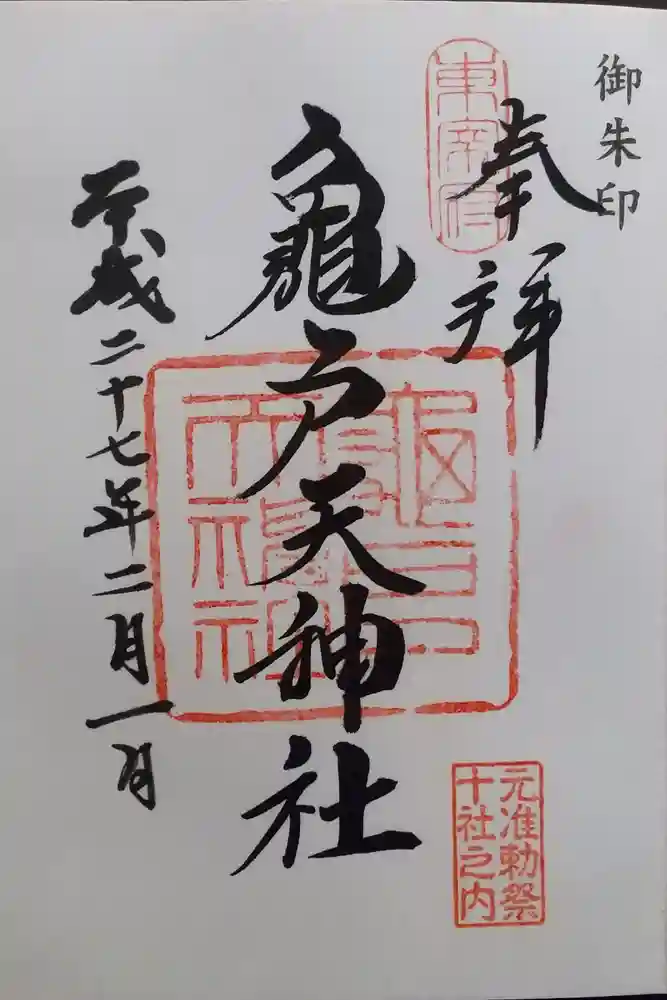 御朱印
奉拝
東宰府
龜戸天神社
平成二十七年二月一日
元准勅祭
十社之内